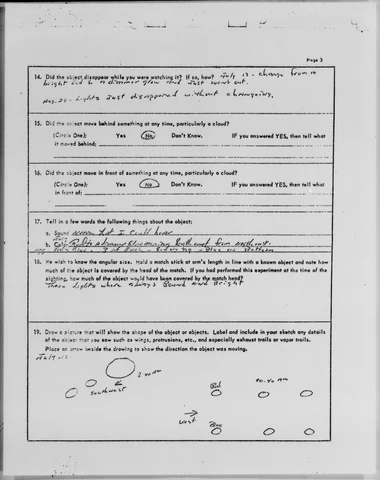 Page 3
14. Did the object disappear while you were watching it? If so, how? July 13 - change from a
bright Red to a dimmer glow and Just went out.
Aug. 20 - Lights Just disappeared without changeing.
15. Did the object move behind something at any time, particularly a cloud?
(Circle One): Yes No Don't Know. IF you answered YES, then tell what
it moved behind:
16. Did the object move in front of something at any time, particularly a cloud?
(Circle One): Yes No Don't Know. IF you answered YES, then tell what
in front of:
17. Tell in a few words the following things about the object:
a. Sound that I could hear
b. Color
18. We wish to know the angular size. Hold a match stick at arm's length in line with a known object and note how
much of the object is covered by the head of the match. If you had performed this experiment at the time of the
sighting, how much of the object would have been covered by the match head?
These Lights where always Round And Bright
19. Draw a picture that will show the shape of the object or objects. Label and include in your sketch any details
of the object that you saw such as wings, protrusions, etc., and especially exhaust trails or vapor trails.
Place an arrow beside the drawing to show the direction the object was moving.
July 13
AM
southwest
Red
AM
West
Blue